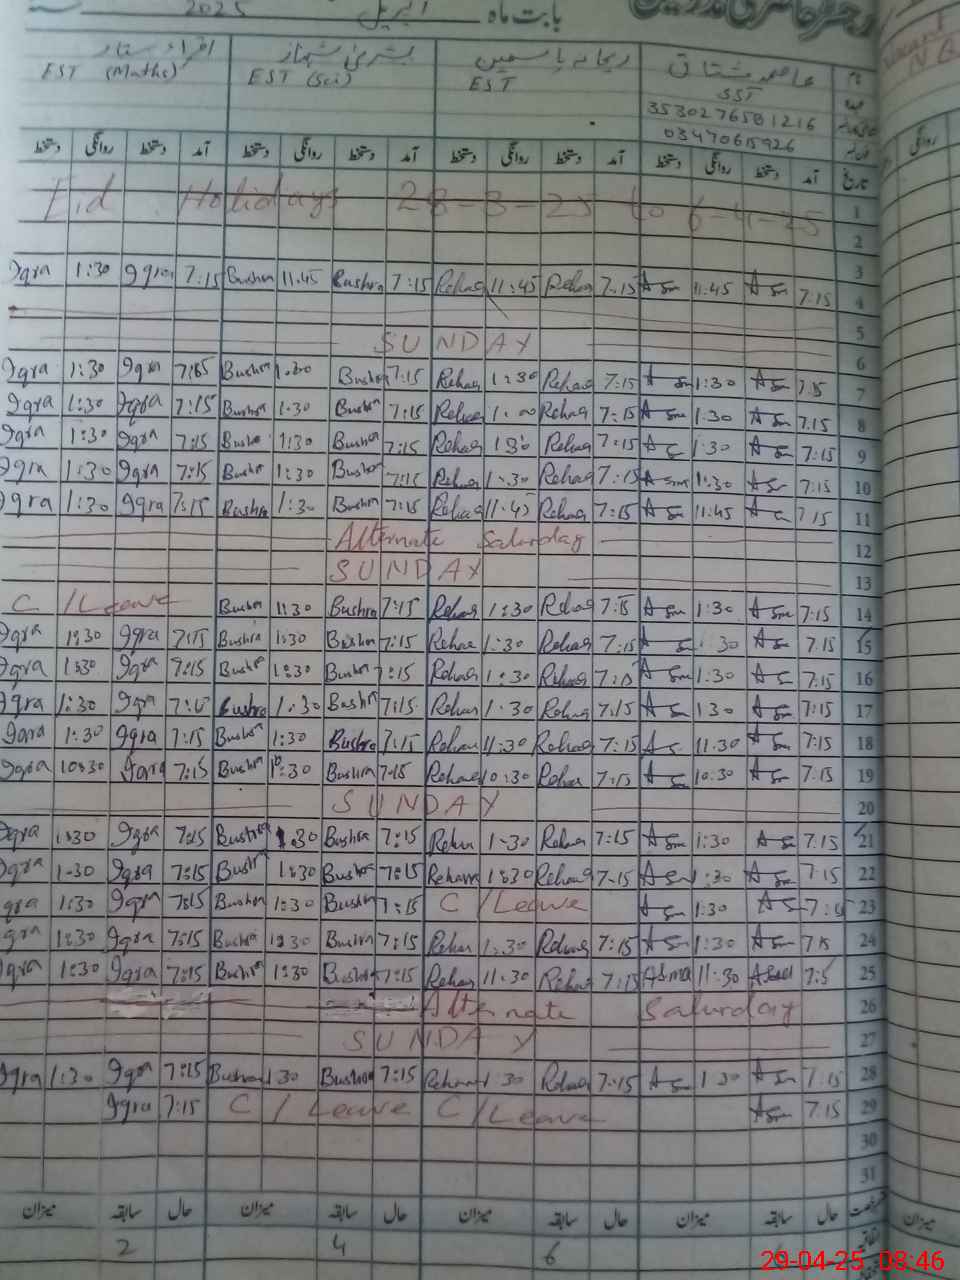 رجسٹر حاضری مدرسین بابت ماہ اپریل 2025
نام عاصمہ مشتاق ریحانہ یاسمین بشریٰ شہناز اقراء ستار
عہدہ SST EST EST (Sci) EST (Maths)
3530276581216
03470615926
تاریخ آمد دستخط روانگی دستخط آمد دستخط روانگی دستخط آمد دستخط روانگی دستخط آمد دستخط روانگی دستخط
1 Eid Holidays 28-3-25 to 6-4-25
2
3
Iqra 1:30 Iqra 7:15 Bushra 11.45 Bushra 7:15 Rehana 11:45 Rehana 7:15 Asma 11:45 Asma 7:15 4
5
SUNDAY 6
Iqra 1:30 Iqra 7:15 Bushra 1.30 Bushra 7:15 Rehana 1:30 Rehana 7:15 Asma 1:30 Asma 7:15 7
Iqra 1:30 Iqra 7:15 Bushra 1.30 Bushra 7:15 Rehana Rehana 7:15 Asma 1:30 Asma 7:15 8
Iqra 1:30 Iqra 7:15 Bushra 1:30 Bushra 7:15 Rehana 1:30 Rehana 7:15 Asma 1:30 Asma 7:15 9
Iqra 1:30 Iqra 7:15 Bushra 1:30 Bushra 7:15 Rehana 1:30 Rehana 7:15 Asma 1:30 Asma 7:15 10
Iqra 1:30 Iqra 7:15 Bushra 1:30 Bushra 7:15 Rehana 11:45 Rehana 7:15 Asma 11:45 Asma 7:15 11
Alternate Saturday 12
SUNDAY 13
C/Leave Bushra 1:30 Bushra 7:15 Rehana 1:30 Rehana 7:15 Asma 1:30 Asma 7:15 14
Iqra 1:30 Iqra 7:15 Bushra 1:30 Bushra 7:15 Rehana 1:30 Rehana 7:15 Asma 1:30 Asma 7:15 15
Iqra 1:30 Iqra 7:15 Bushra 1:30 Bushra 7:15 Rehana 1:30 Rehana 7:15 Asma 1:30 Asma 7:15 16
Iqra 1:30 Iqra Bushra 1:30 Bushra 7:15 Rehana 1:30 Rehana 7:15 Asma 1:30 Asma 7:15 17
Iqra 1:30 Iqra 7:15 Bushra 1:30 Bushra 7:15 Rehana 11:30 Rehana 7:15 Asma 11:30 Asma 7:15 18
Iqra 10:30 Iqra 7:15 Bushra 10:30 Bushra 7:15 Rehana 10:30 Rehana 7:15 Asma 10:30 Asma 7:15 19
SUNDAY 20
Iqra 1:30 Iqra 7:15 Bushra 1:30 Bushra 7:15 Rehana 1:30 Rehana 7:15 Asma 1:30 Asma 7:15 21
Iqra 1:30 Iqra 7:15 Bushra 1:30 Bushra 7:15 Rehana 1:30 Rehana 7:15 Asma 1:30 Asma 7:15 22
Iqra 1:30 Iqra 7:15 Bushra 1:30 Bushra 7:15 C/Leave Asma 1:30 Asma 7:15 23
Iqra 1:30 Iqra 7:15 Bushra 1:30 Bushra 7:15 Rehana 1:30 Rehana 7:15 Asma 1:30 Asma 7:15 24
Iqra 1:30 Iqra 7:15 Bushra 1:30 Bushra 7:15 Rehana 11:30 Rehana 7:15 Asma 11:30 Asma 7:15 25
Alternate Saturday 26
SUNDAY 27
Iqra 1:30 Iqra 7:15 Bushra 1:30 Bushra 7:15 Rehana 1:30 Rehana 7:15 Asma 1:30 Asma 7:15 28
Iqra 7:15 C/Leave C/Leave Asma 7:15 29
30
31
حال سابقہ میزان حال سابقہ میزان حال سابقہ میزان حال سابقہ میزان
2 4 6
29-04-25 08:46